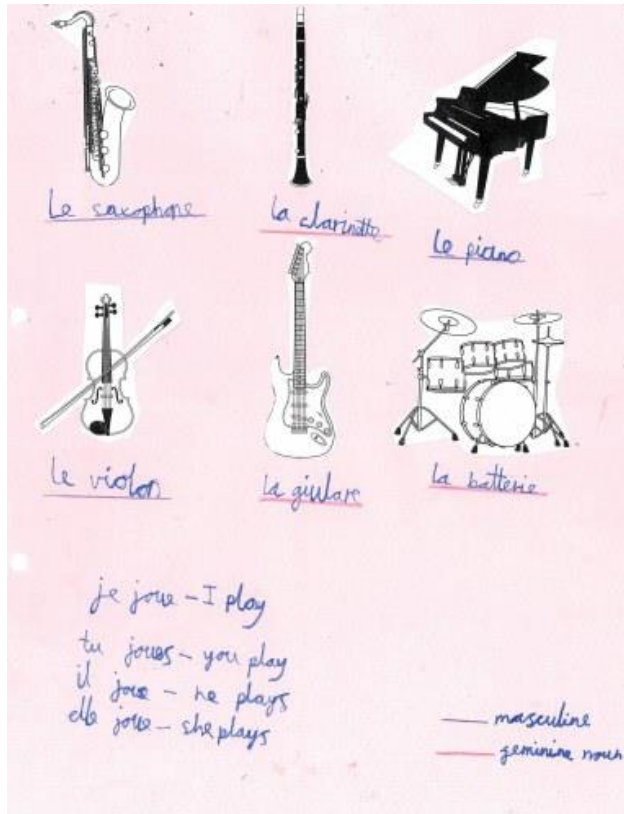 Le saxophone
La clarinette
Le piano
Le violon
La giulare
La batterie
je joue - I play
tu joues - you play
il joue - he plays
elle joue - she plays
masculine
feminine noun